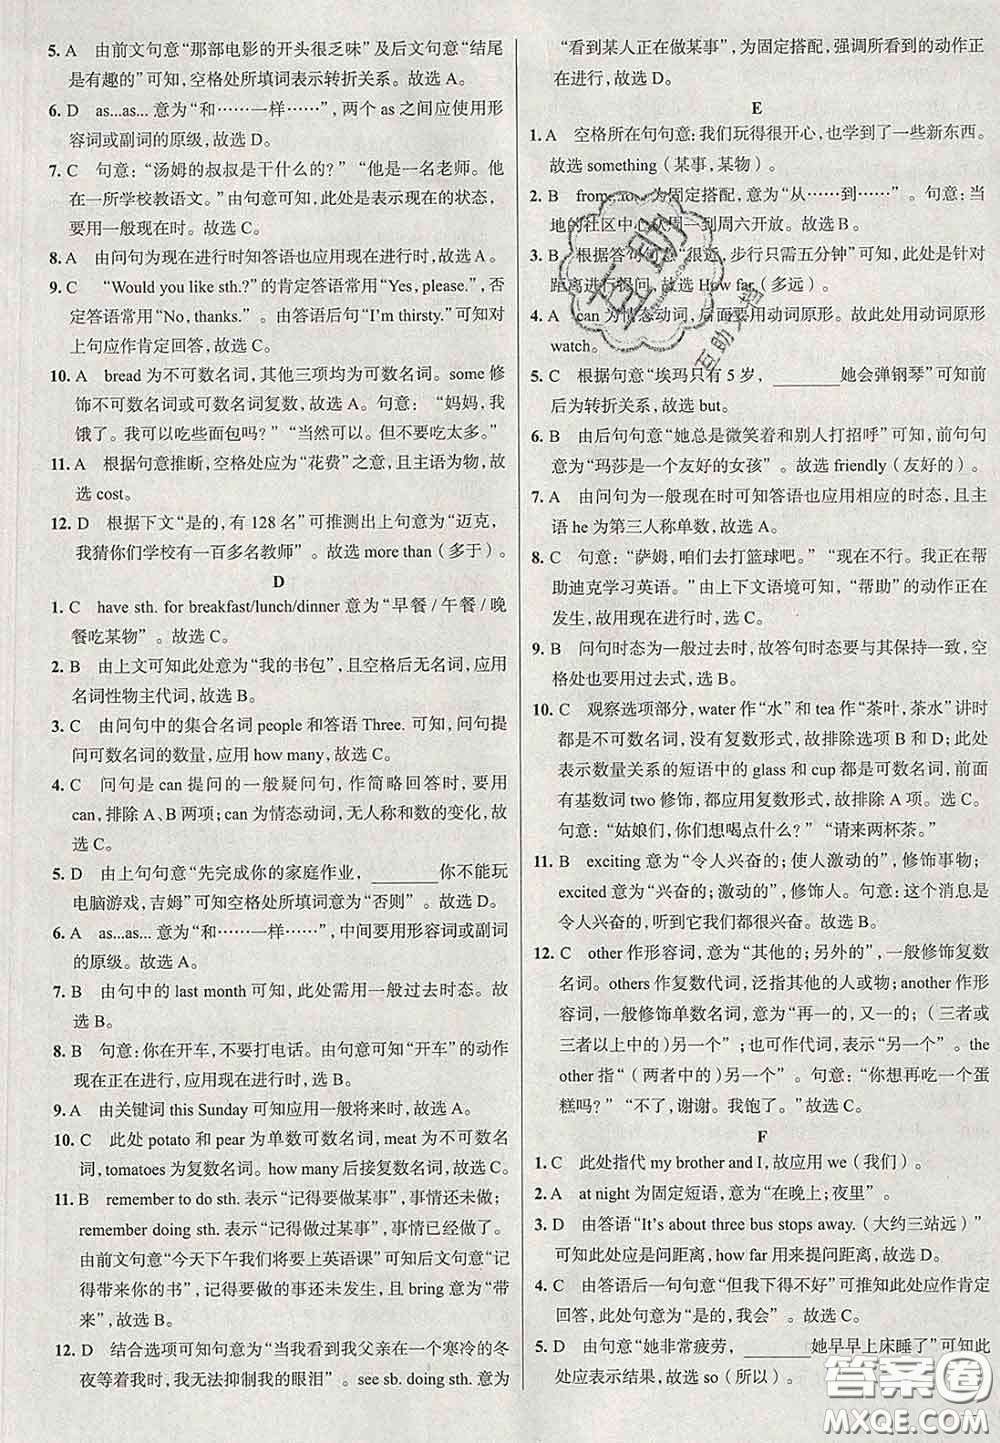 5. A 由前文句意“那部电影的开头很乏味”及后文句意“结尾
是有趣的”可知,空格处所填词表示转折关系。故选 A。
6. D as...as... 意为“和……一样……”,两个 as 之间应使用形
容词或副词的原级,故选 D。
7. C 句意:“汤姆的叔叔是干什么的?”“他是一名老师。他
在一所学校教语文。”由句意可知,此处是表示现在的状态,
要用一般现在时。故选 C。
8. A 由问句为现在进行时知答语也应用现在进行时,故选 A。
9. C “Would you like sth.?”的肯定答语常用“Yes, please.”,否
定答语常用“No, thanks.”。由答语后句“I'm thirsty.”可知对
上句应作肯定回答,故选 C。
10. A bread 为不可数名词,其余三项均为可数名词。some 修
饰不可数名词或可数名词复数,故选 A。句意:“妈妈,我
饿了。我可以吃些面包吗?”“当然可以。但不要吃太多。”
11. A 根据句意推断,空格处应为“花费”之意,且主语为物,故
选 cost。
12. D 根据下文“是的,有 128 名”可推测出上句意为“迈克,
我猜你们学校有一百多名教师”。故选 more than(多于)。
D
1. C have sth. for breakfast/lunch/dinner 意为“早餐/午餐/晚
餐吃某物”。故选 C。
2. B 由上文可知此处意为“我的书包”,且空格后无名词,应用
名词性物主代词,故选 B。
3. C 由问句中的集合名词 people 和答语 Three. 可知,问句提
问可数名词的数量,应用 how many,故选 C。
4. C 问句是 can 提问的一般疑问句,作简略回答时,要用
can,排除 A、B 两项;can 为情态动词,无人称和数的变化,故
选 C。
5. D 由上句句意“先完成你的家庭作业,______你不能玩
电脑游戏,吉姆”可知空格处所填词意为“否则”。故选 D。
6. A as...as... 意为“和……一样……”,中间要用形容词或副词
的原级。故选 A。
7. B 由句中的 last month 可知,此处需用一般过去时态。故
选 B。
8. B 句意:你在开车,不要打电话。由句意可知“开车”的动作
现在正在进行,应用现在进行时,选 B。
9. A 由关键词 this Sunday 可知应用一般将来时,故选 A。
10. C 此处 potato 和 pear 为单数可数名词,meat 为不可数名
词,tomatoes 为复数名词。how many 后接复数名词,故选 C。
11. B remember to do sth. 表示“记得要做某事”,事情还未做;
remember doing sth. 表示“记得做过某事”,事情已经做了。
由前文句意“今天下午我们将要上英语课”可知后文句意“记
得带你的书”,记得要做的事还未发生,且 bring 意为“带
来”,故选 B。
12. D 结合选项可知句意为“当我看到我父亲在一个寒冷的冬
夜等着我时,我无法抑制我的眼泪”。see sb. doing sth. 意为
“看到某人正在做某事”,为固定搭配,强调所看到的动作正
在进行,故选 D。
E
1. A 空格所在句句意:我们玩得很开心,也学到了一些新东西。
故选 something(某事,某物)。
2. B from...to... 为固定搭配,意为“从……到……”。句意:当
地的社区中心从周一到周六开放。故选 B。
3. B 根据答句句意“很近,步行只需五分钟”可知,此处是针对
距离进行提问,故选 How far(多远)。
4. A can 为情态动词,后面要用动词原形。故此处用动词原形
watch。
5. C 根据句意“埃玛只有 5 岁,______她会弹钢琴”可知前
后为转折关系,故选 but。
6. B 由后句句意“她总是微笑着和别人打招呼”可知,前句句
意为“玛莎是一个友好的女孩”。故选 friendly(友好的)。
7. A 由问句为一般现在时可知答语也应用相应的时态,且主
语 he 为第三人称单数,故选 A。
8. C 句意:“萨姆,咱们去打篮球吧。”“现在不行。我正在帮
助迪克学习英语。”由上下文语境可知,“帮助”的动作正在
发生,故用现在进行时,选 C。
9. B 问句时态为一般过去时,故答句时态要与其保持一致,空
格处也要用过去式,选 B。
10. C 观察选项部分,water 作“水”和 tea 作“茶叶,茶水”讲时
都是不可数名词,没有复数形式,故排除选项 B 和 D;此处
表示数量关系的短语中的 glass 和 cup 都是可数名词,前面
有基数词 two 修饰,都应用复数形式,故排除 A 项。选 C。
句意:“姑娘们,你们想喝点什么?”“请来两杯茶。”
11. B exciting 意为“令人兴奋的;使人激动的”,修饰事物;
excited 意为“兴奋的;激动的”,修饰人。句意:这个消息是
令人兴奋的,听到它我们都很兴奋。故选 B。
12. C other 作形容词,意为“其他的;另外的”,一般修饰复数
名词。others 作复数代词,泛指其他的人或物;another 作形
容词,一般修饰单数名词,意为“再一的,又一的;(三者或
三者以上中的)另一个”;也可作代词,表示“另一个”。the
other 指“(两者中的)另一个”。句意:“你想再吃一个蛋
糕吗?”“不了,谢谢。我饱了。”故选 C。
F
1. C 此处指代 my brother and I,故应用 we(我们)。
2. A at night 为固定短语,意为“在晚上;夜里”。
3. D 由答语“It's about three bus stops away.(大约三站远)”
可知此处应是问距离,how far 用来提问距离,故选 D。
4. C 由答语后一句句意“但我下得不好”可推知此处应作肯定
回答,此处句意为“是的,我会”。故选 C。
5. D 由句意“她非常疲劳,______她早早上床睡了”可知此
处应表示结果,故选 so(所以)。
互助
互助文档
答案圈
MXQE.COM